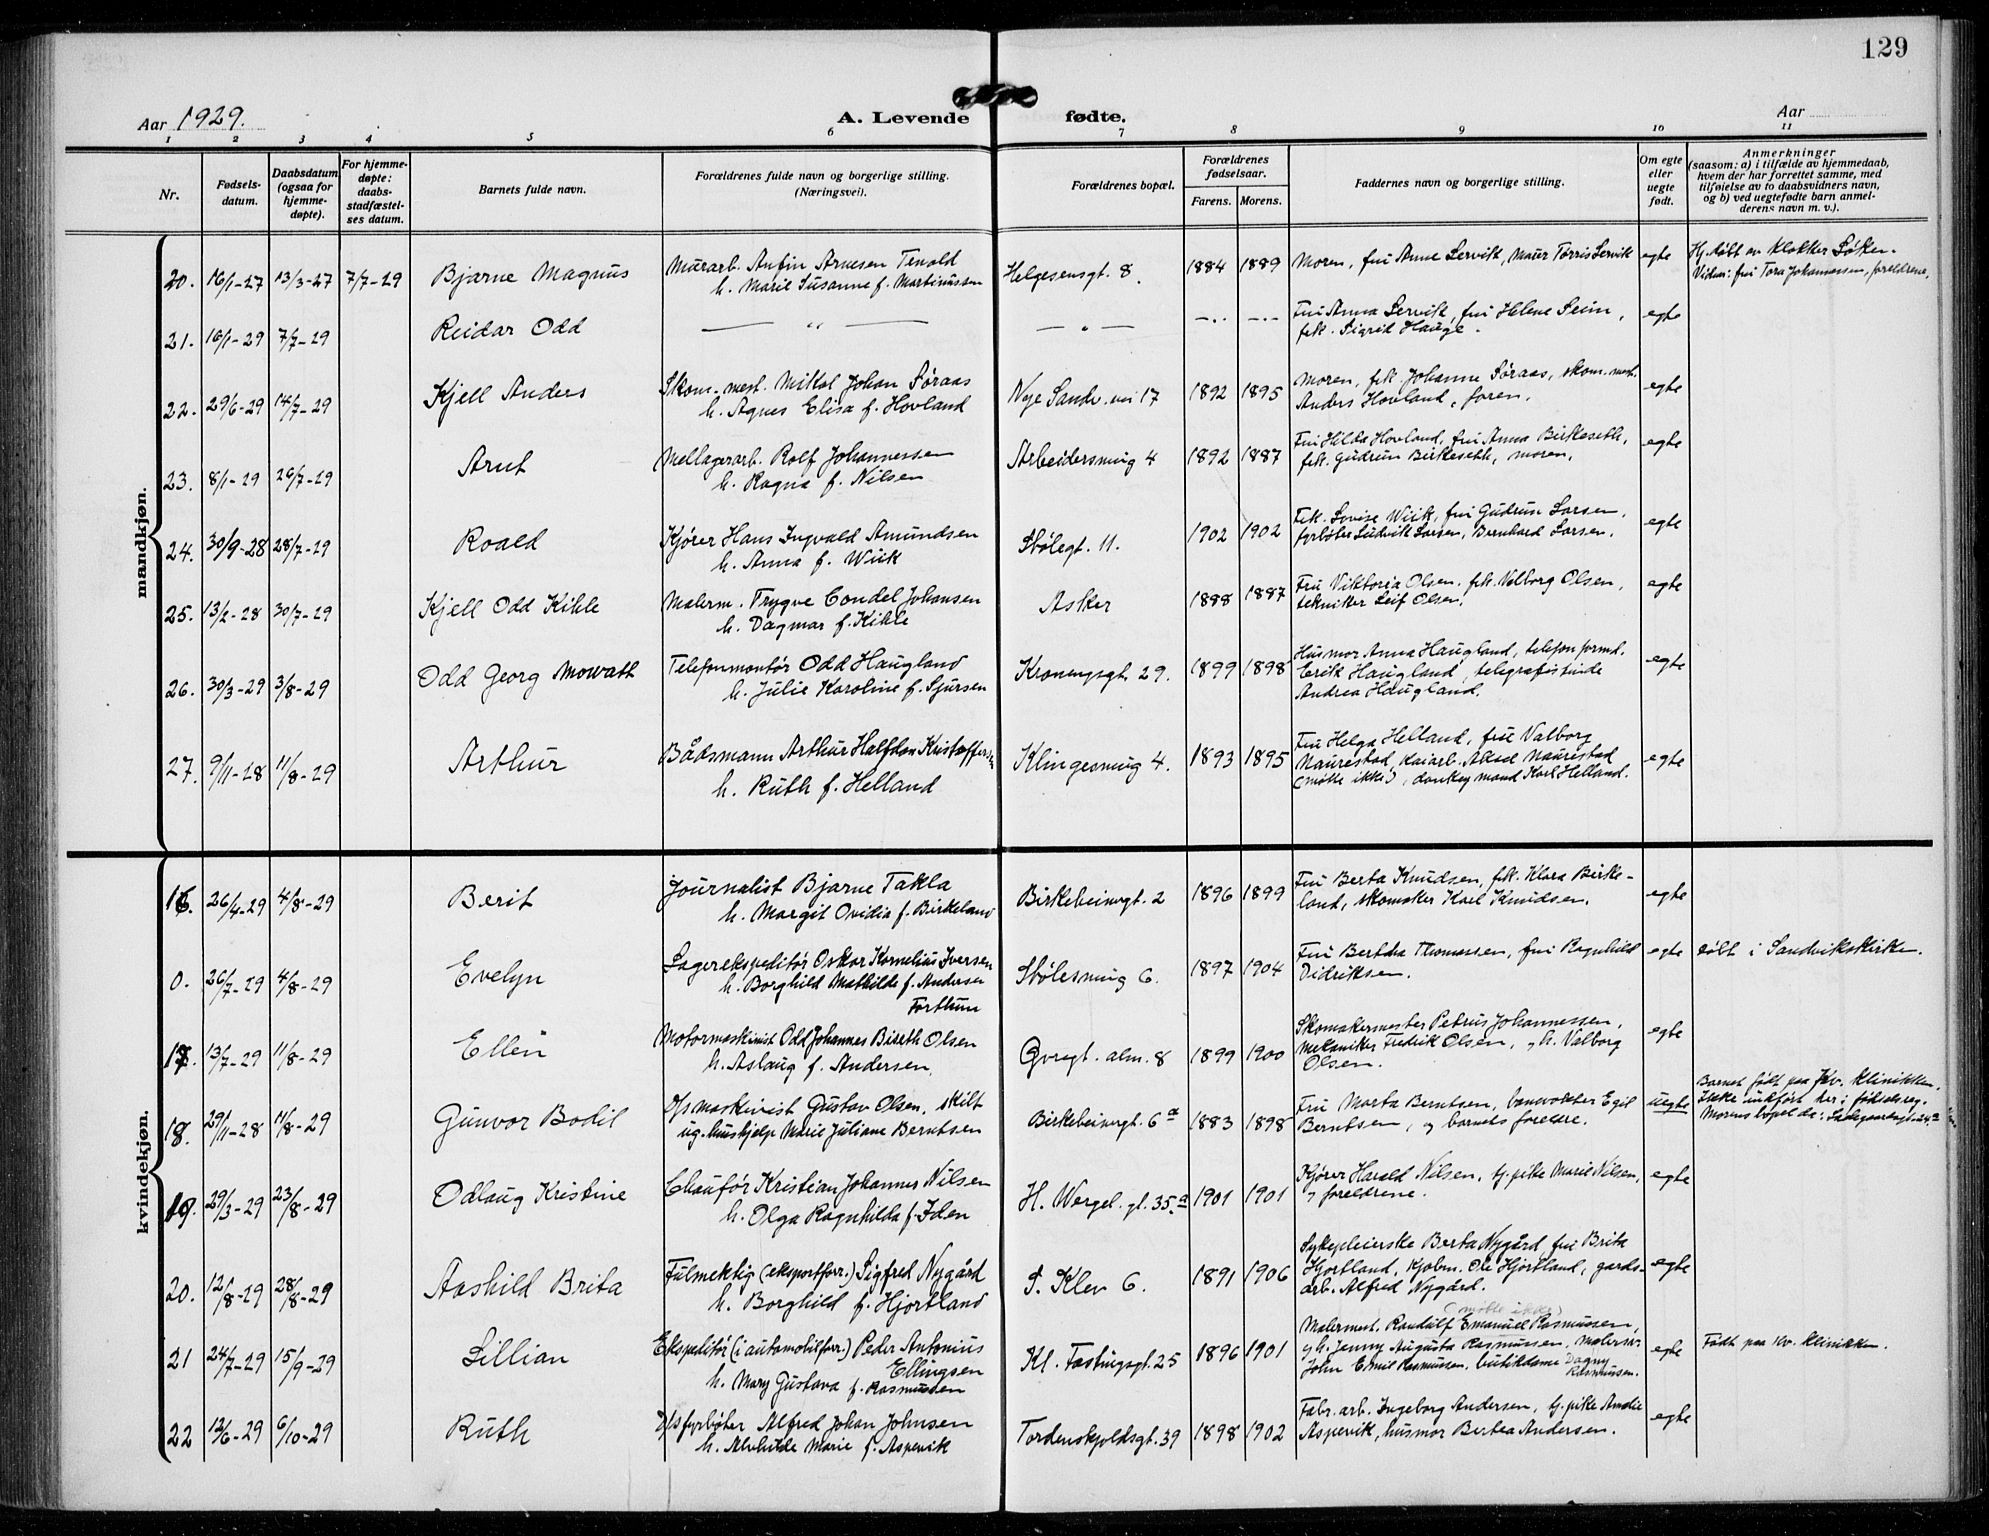 129
Aar 1929.
A. Levende fødte.
Aar
1 2 3 4 5 6 7 8 9 10 11
Nr.
Fødsels-
datum.
Daabsdatum
(ogsaa for
hjemme-
døpte).
For hjemme-
døpte:
daabs-
stadfæstel-
ses datum.
Barnets fulde navn.
Forældrenes fulde navn og borgerlige stilling.
(Næringsvei).
Forældrenes bopæl.
Forældrenes
fødselsaar.
Farens. Morens.
Faddernes navn og borgerlige stilling.
Om egte
eller
uegte
født.
Anmerkninger
(saasom: a) i tilfælde av hjemmedaab,
hvem der har forrettet samme, med
tilføielse av to daabsvidners navn,
og b) ved uegtefødte barn anmel-
derens navn m. v.).
mandkjøn.
20. 16/1-27 13/3-27 7/7-29 Bjarne Magnus
Murarb. Anfin Arnesen Tenold
h. Marie Susanne f. Martinussen
Helgesensgt. 8. 1884 1889
Moren, fru Anne Servik, Murer Torris Servik
egte
Hj.døbt av klokker Søker.
Vidner: fru Tora Johannessen, foreldrene.
21. 16/1-29 7/7-29 Reidar Odd
— " —
— " — —..— —..—
Fru Anna Servik, fru Helene Seim,
frk. Sigrid Hauge.
egte
22. 29/6-29 14/7-29 Kjell Anders
Skom.mest. Mikal Johan Søraas
h. Agnes Elisa f. Hovland
Nye Sandv.vei 17 1892 1895
Moren, frk. Johanne Søraas, skom.mest.
Anders Hovland, faren.
egte
23. 8/1-29 26/7-29 Arnt
Mellagerarb. Rolf Johannessen
h. Ragna f. Nilsen
Arbeidersmug 4 1892 1887
Fru Hilda Hovland, fru Anna Birkeseth,
frk. Gudrun Birkeseth, moren.
egte
24. 30/9-28 28/7-29 Roald
Kjører Hans Ingvald Amundsen
h. Anna f. Wiik
Stølegt. 11. 1902 1902
Frk. Lovise Wiik, fru Gudrun Larsen,
fyrbøter Ludvik Larsen, Bernhard Larsen.
egte
25. 13/2-28 30/7-29 Kjell Odd Kihle
Malerm. Trygve Condel Johansen
h. Dagmar f. Kihle
Asker 1888 1887
Fru Viktoria Olsen, frk. Valborg Olsen,
tekniker Leif Olsen.
egte
26. 30/3-29 3/8-29 Odd Georg Mowath
Telefonmontør Odd Haugland
h. Julie Karoline f. Sjursen
Kronengsgt. 29. 1899 1898
Husmor Anna Haugland, telefonformd.
Erik Haugland, telegrafistinde
Andrea Haugland.
egte
27. 9/11-28 11/8-29 Arthur
Bådsmann Arthur Halfdan Kristoffersen
h. Ruth f. Helland
Klingesmug 4. 1893 1895
Fru Helga Helland, fru Valborg
Naurestad, kaiarb. Aksel Naurestad
(møtte ikke), donkeymand Karl Helland.
egte
kvindekjøn.
16. 26/4-29 4/8-29 Berit
Journalist Bjarne Takla
h. Margit Ovidia f. Birkeland
Birkebeinergt. 2 1896 1899
Fru Berta Knudsen, frk. Klara Birke-
land, skomaker Karl Knudsen.
egte
0. 26/7-29 4/8-29 Evelyn
Lagerekspeditør Oskar Kornelius Iversen
h. Borghild Mathilde f. Andersen
Forthun
Stølesmug 6. 1897 1904
Fru Bertha Thomassen, fru Ragnhild
Didriksen.
egte
døbt i Sandvikskirken.
17. 13/7-29 11/8-29 Ellen
Motormaskinist Odd Johannes Biseth Olsen
h. Aslaug f. Andersen.
Øvregt. alm. 8 1899 1900
Skomakermester Petrus Johannessen,
mekaniker Fredrik Olsen, og h. Valborg
Olsen.
egte
18. 29/11-28 11/8-29 Gunvor Bodil
D/s maskinist Gustav Olsen, skilt
ug. hushjelp Marie Juliane Berntsen
Birkebeinergt. 6a 1883 1898
Fru Marta Berntsen, banvokter Egil
Berntsen, og barnets foreldre.
uegte
Barnet født paa Kv. klinikken.
Ikke indført her i fødselsreg.
Morens bopel da: Ladegaardsgt. 24a
19. 29/3-29 23/8-29 Odlaug Kristine
Chauffør Kristian Johannes Nilsen
h. Olga Ragnhilda f. Iden
H. Wergel. gt. 35.a 1901 1901
Kjører Harald Nilsen, tj.pike Marie Nilsen,
og foreldrene.
egte
20. 12/8-29 28/8-29 Aashild Brita
Fulmektig (eksportforr.) Sigfred Nygård
h. Borghild f. Hjortland
S. Klev 6. 1891 1906
Sykepleierske Berta Nygård, fru Brita
Hjortland, kjøbm. Ole Hjortland, gards-
arb. Alfred Nygård.
egte
21 24/7-29 15/9-29 Lillian
Ekspeditør (i automobilforr.) Peder Antonius
Ellingsen
h. Mary Gustava f. Rasmussen
Kl. Fastingsgt. 25 1896 1901
(møtte ikke)
Malermest. Randulf Emanuel Rasmussen,
og h. Jenny Augusta Rasmussen, malersv.
John Emil Rasmussen, butikdame Dagny
Rasmussen.
egte
Født paa kv. klinikken.
22 12/6-29 6/10-29 Ruth
D/s fyrbøter Alfred Johan Johnsen
h. Alvhilde Marie f. Aspevik
Tordenskjoldsgt. 39 1898 1902
Fabr.arb. Ingeborg Andersen, tj.pike Amalie
Aspevik, husmor Bertea Andersen.
egte